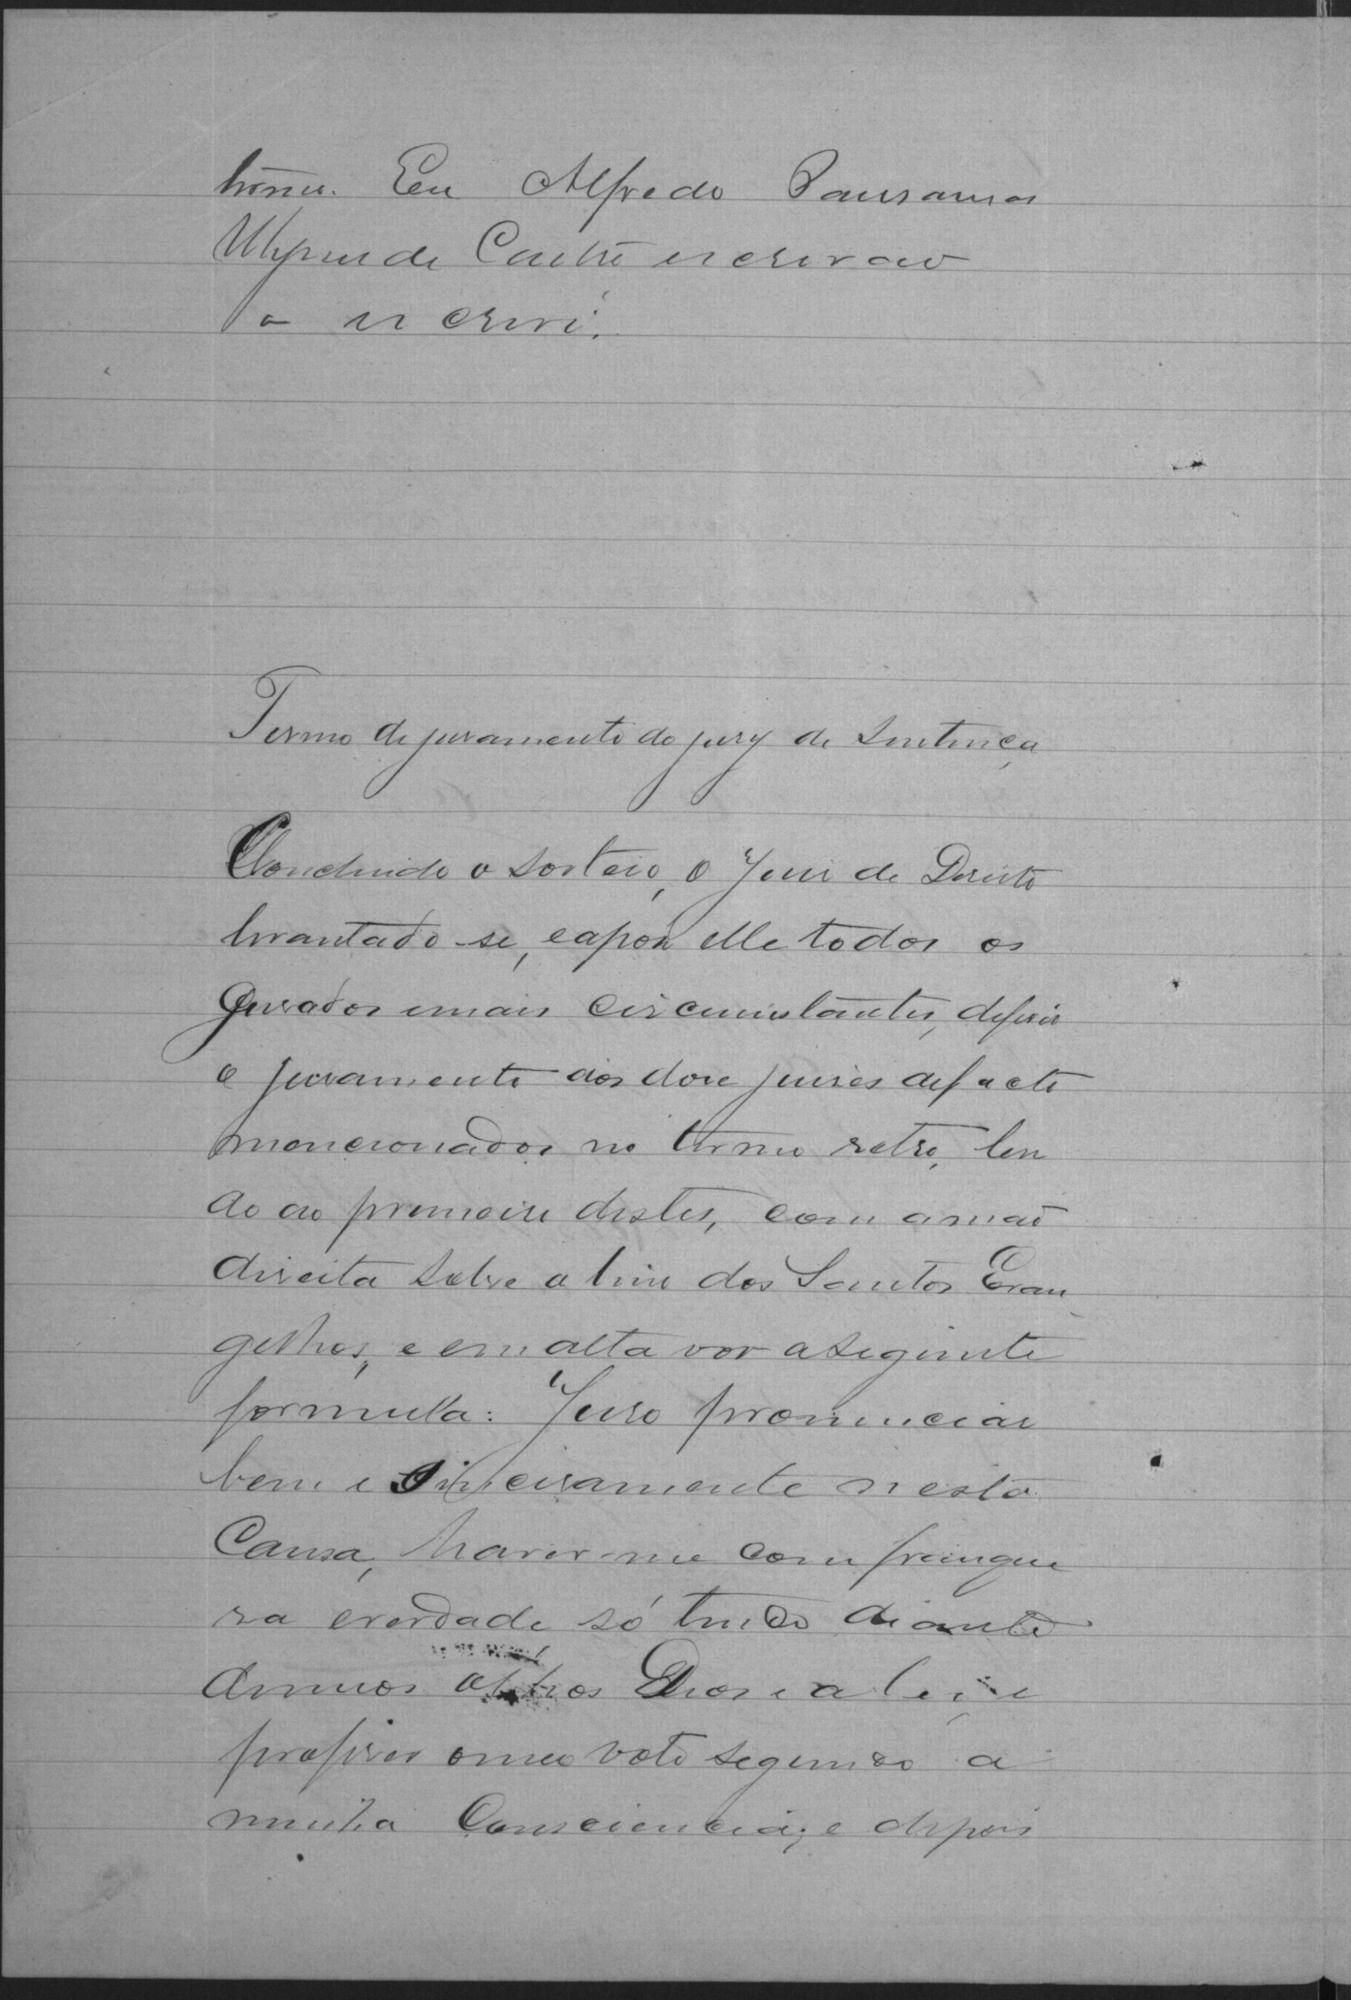 Eu Alfredo
de Castro escrivão
o escrevi.
Termo de juramento do jury de Sentença
Concluido o sorteio, o Juiz de Direito
levantado-se, e apos elle todos os
Jurados e mais circumstantes, deferio
o juramento aos doze juizes de facto
moncionados no termo retro, len
do ao primeiro destes, com a mão
direita sobre o livro dos Santos Evan
gelhos, e em alta voz a seguinte
formula: Juro pronunciar
bem e sinceramente nesta
Causa, haver-me com franque
za e verdade só tendo diante
de meus olhos Deos e a lei, e
proferir o meu voto segundo a
minha Consciencia; e depois